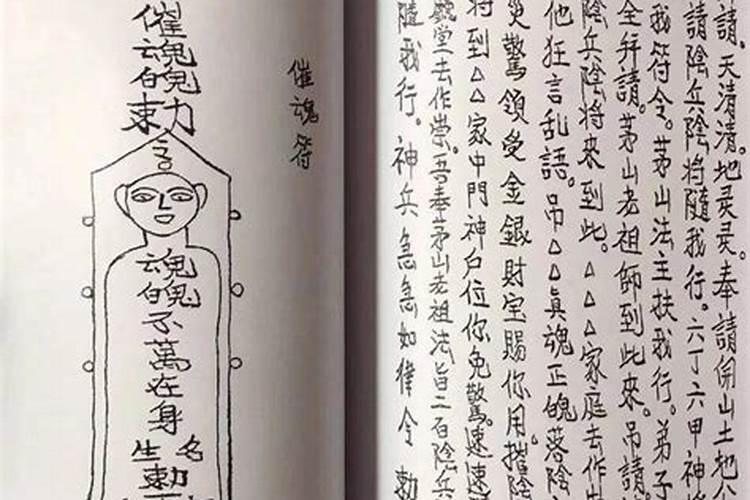 請。天清清。地灵灵。奉請開山土地
請陰兵陰將隨我行。六丁六甲神將
我符令。茅山法主扶我行。弟子
全拜請。茅山老祖師到此來。吊請
陰兵陰將來到此。△△△家庭去作
他狂言乱語。吊△△真魂正魄落陰
災驚領受金銀財宝賜你用。摧陰
將到△△家中門神户位你免驚。速速
堂去作崇。吾奉茅山老祖法旨二百陰兵
隨我行。神兵急急如律令 勅
催魂符
催魂魄勅
魂魄不萬在身
名
勅
生